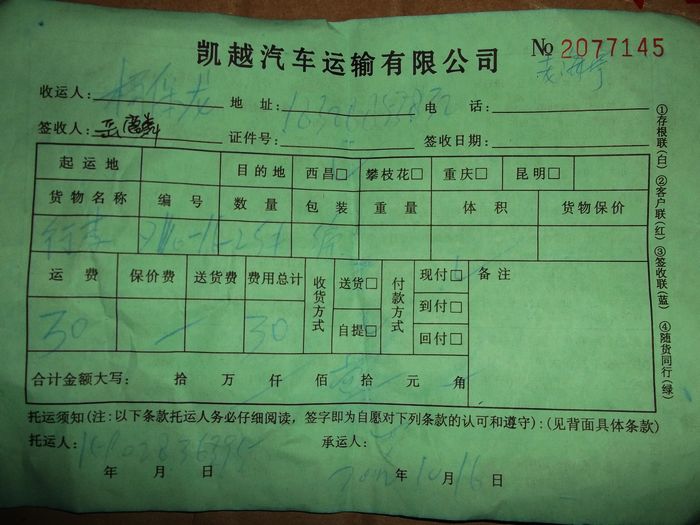 凯越汽车运输有限公司 No 2077145
收运人: 地 址: 电 话:
签收人: 证件号: 签收日期:
起运地 目的地 西昌□ 攀枝花□ 重庆□ 昆明□
货物名称 编 号 数 量 包 装 重 量 体 积 货物保价
行李
运 费 保价费 送货费 费用总计 收货方式 送货□ 付款方式 现付□ 备 注
到付□
自提□ 回付□
30 一 30
合计金额大写: 拾 万 仟 佰 拾 元 角
托运须知(注:以下条款托运人务必仔细阅读,签字即为自愿对下列条款的认可和遵守):(见背面具体条款)
托运人: 承运人:
年 月 日 2012年10月16日
①存根联(白) ②客户联(红) ③签收联(蓝) ④随货同行(绿)